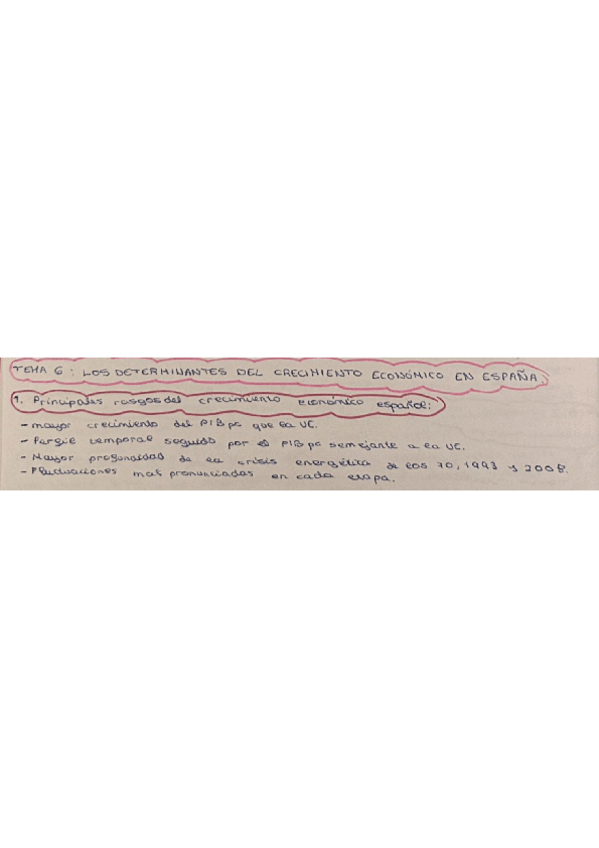 TEMA 6: LOS DETERMINANTES DEL CRECIMIENTO ECONÓMICO EN ESPAÑA.
1. Principales rasgos del crecimiento económico español:
- mayor crecimiento del PIB pc que la UE.
- Perfil temporal seguido por el PIB pc semejante a la UE.
- Mayor profundidad de la crisis energética de los 70, 1993 y 2008.
- Fluctuaciones mas pronunciadas en cada etapa.